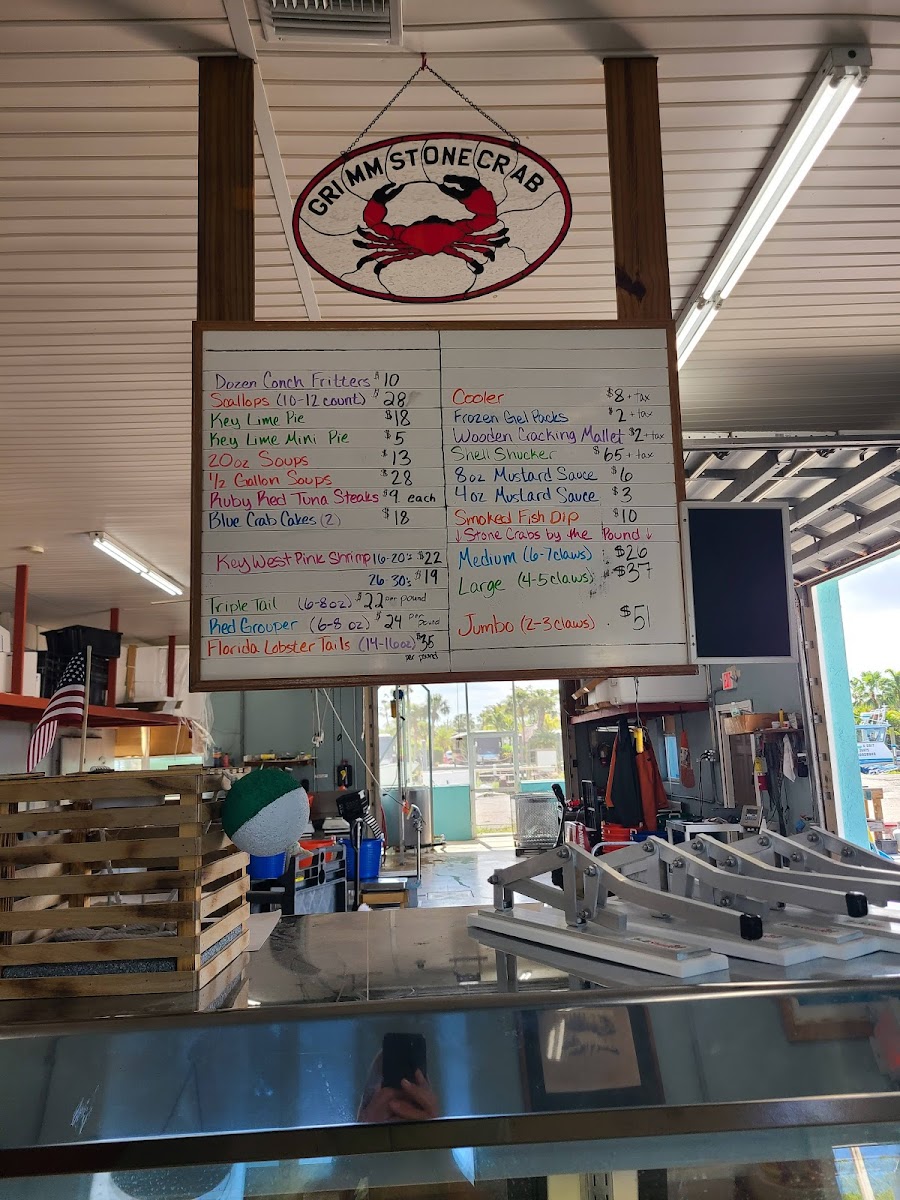 GRIMM STONE CRAB
Dozen Conch Fritters $10
Scallops (10-12 count) $28
Key Lime Pie $18
Key Lime Mini Pie $5
20oz Soups $13
1/2 Gallon Soups $28
Ruby Red Tuna Steaks $9 each
Blue Crab Cakes (2) $18
Key West Pink Shrimp 16-20's $22
26-30's $19
Triple Tail (6-8oz) $22 per pound
Red Grouper (6-8 oz) $24 per pound
Florida Lobster Tails (14-16oz) $35 per pound
Cooler $8 + tax
Frozen Gel Packs $2 + tax
Wooden Cracking Mallet $2 + tax
Shell Shucker $65 + tax
8oz Mustard Sauce $6
4oz Mustard Sauce $3
Smoked Fish Dip $10
↓Stone Crabs by the Pound↓
Medium (6-7claws) $26
Large (4-5claws) $37
Jumbo (2-3claws) $51